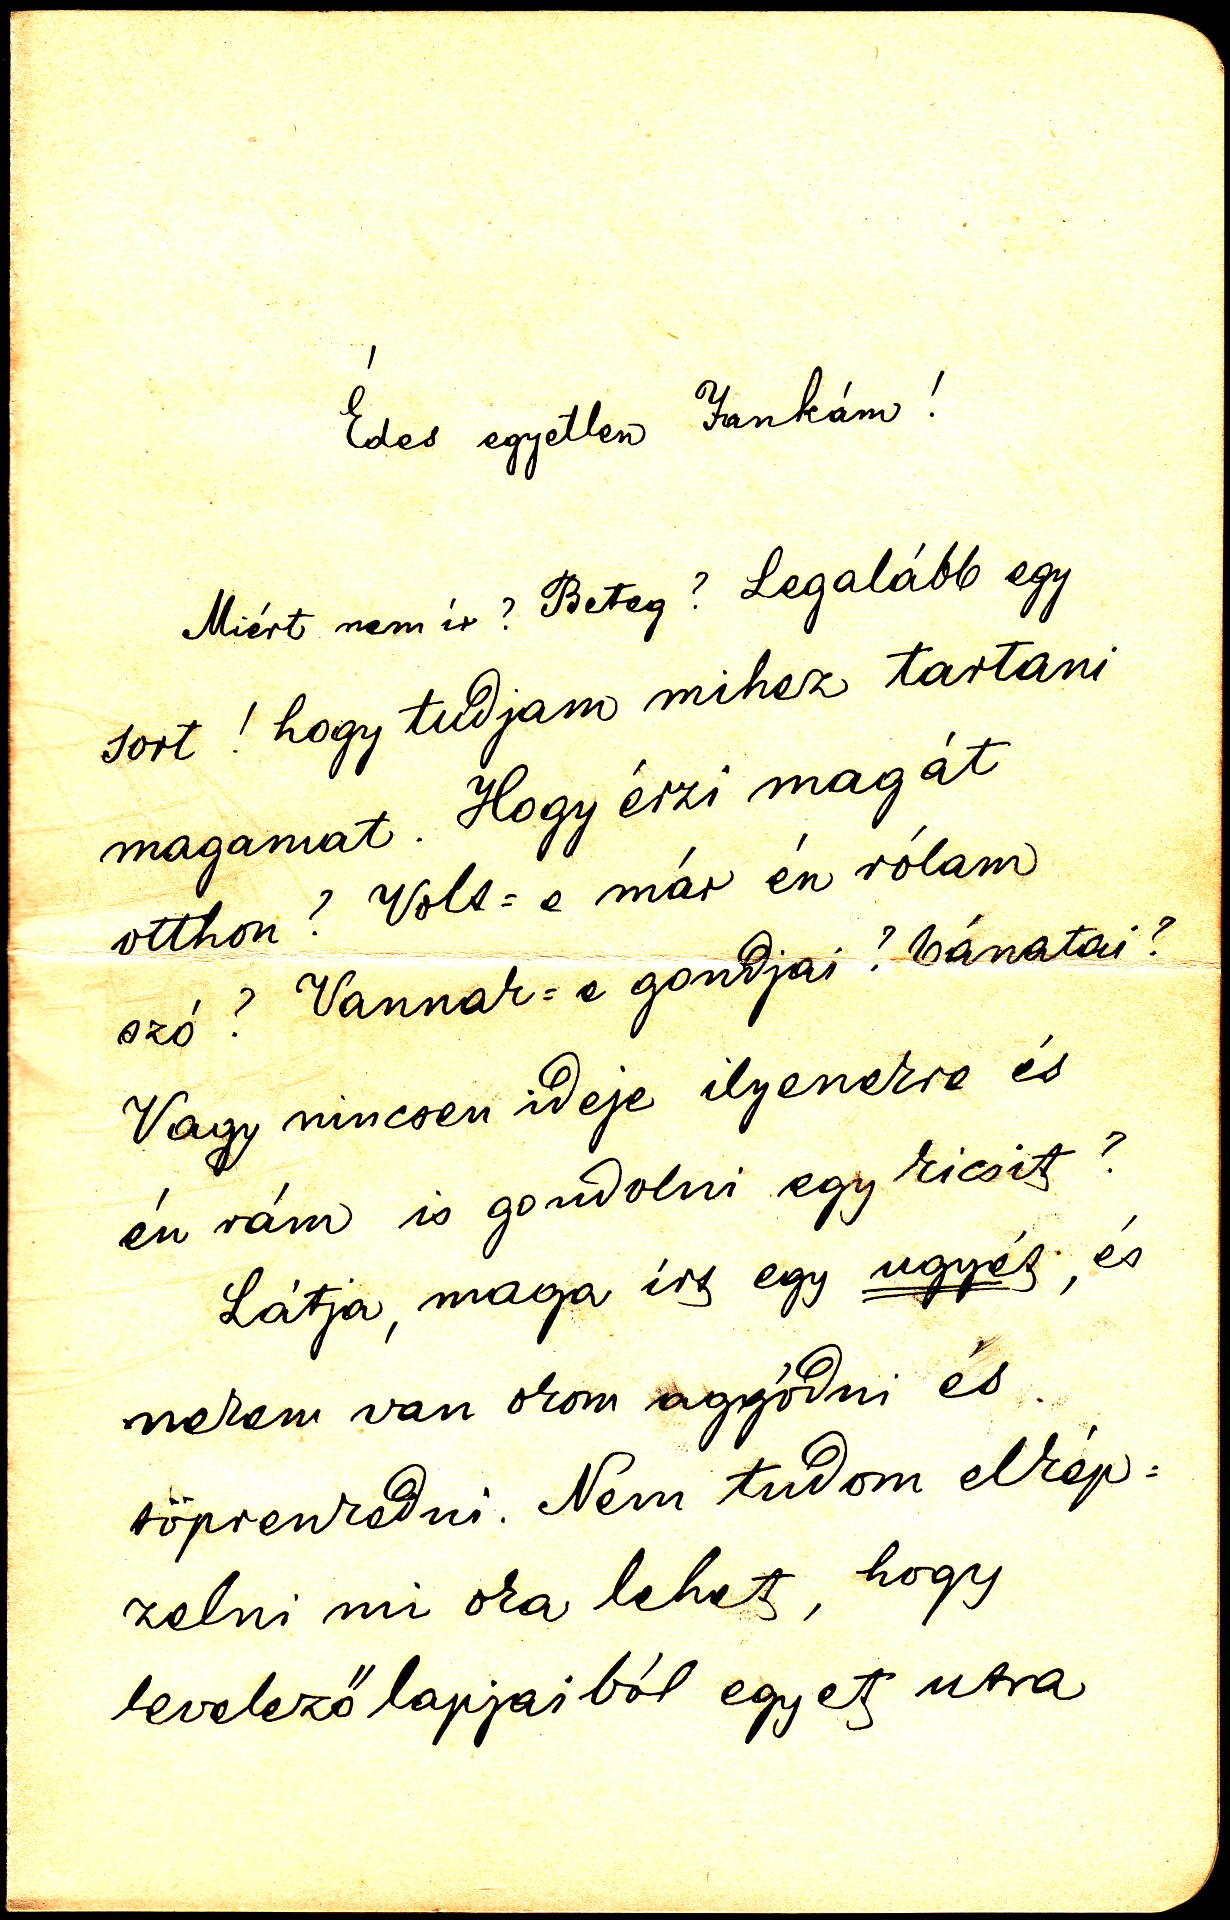 Édes egyetlen Jankám!
Miért nem ír? Beteg? Legalább egy
sort! hogy tudjam mihez tartani
magamat. Hogy érzi magát
otthon? Volt=e már én rólam
szó? Vannak=e gondjai? bánatai?
Vagy nincsen ideje ilyenekre és
én rám is gondolni egy kicsit?
Látja, maga írt egy ugyét, és
nekem van okom aggódni és
töprenkedni. Nem tudom elkép=
zelni mi oka lehet, hogy
levelezőlapjaiból egyet utra